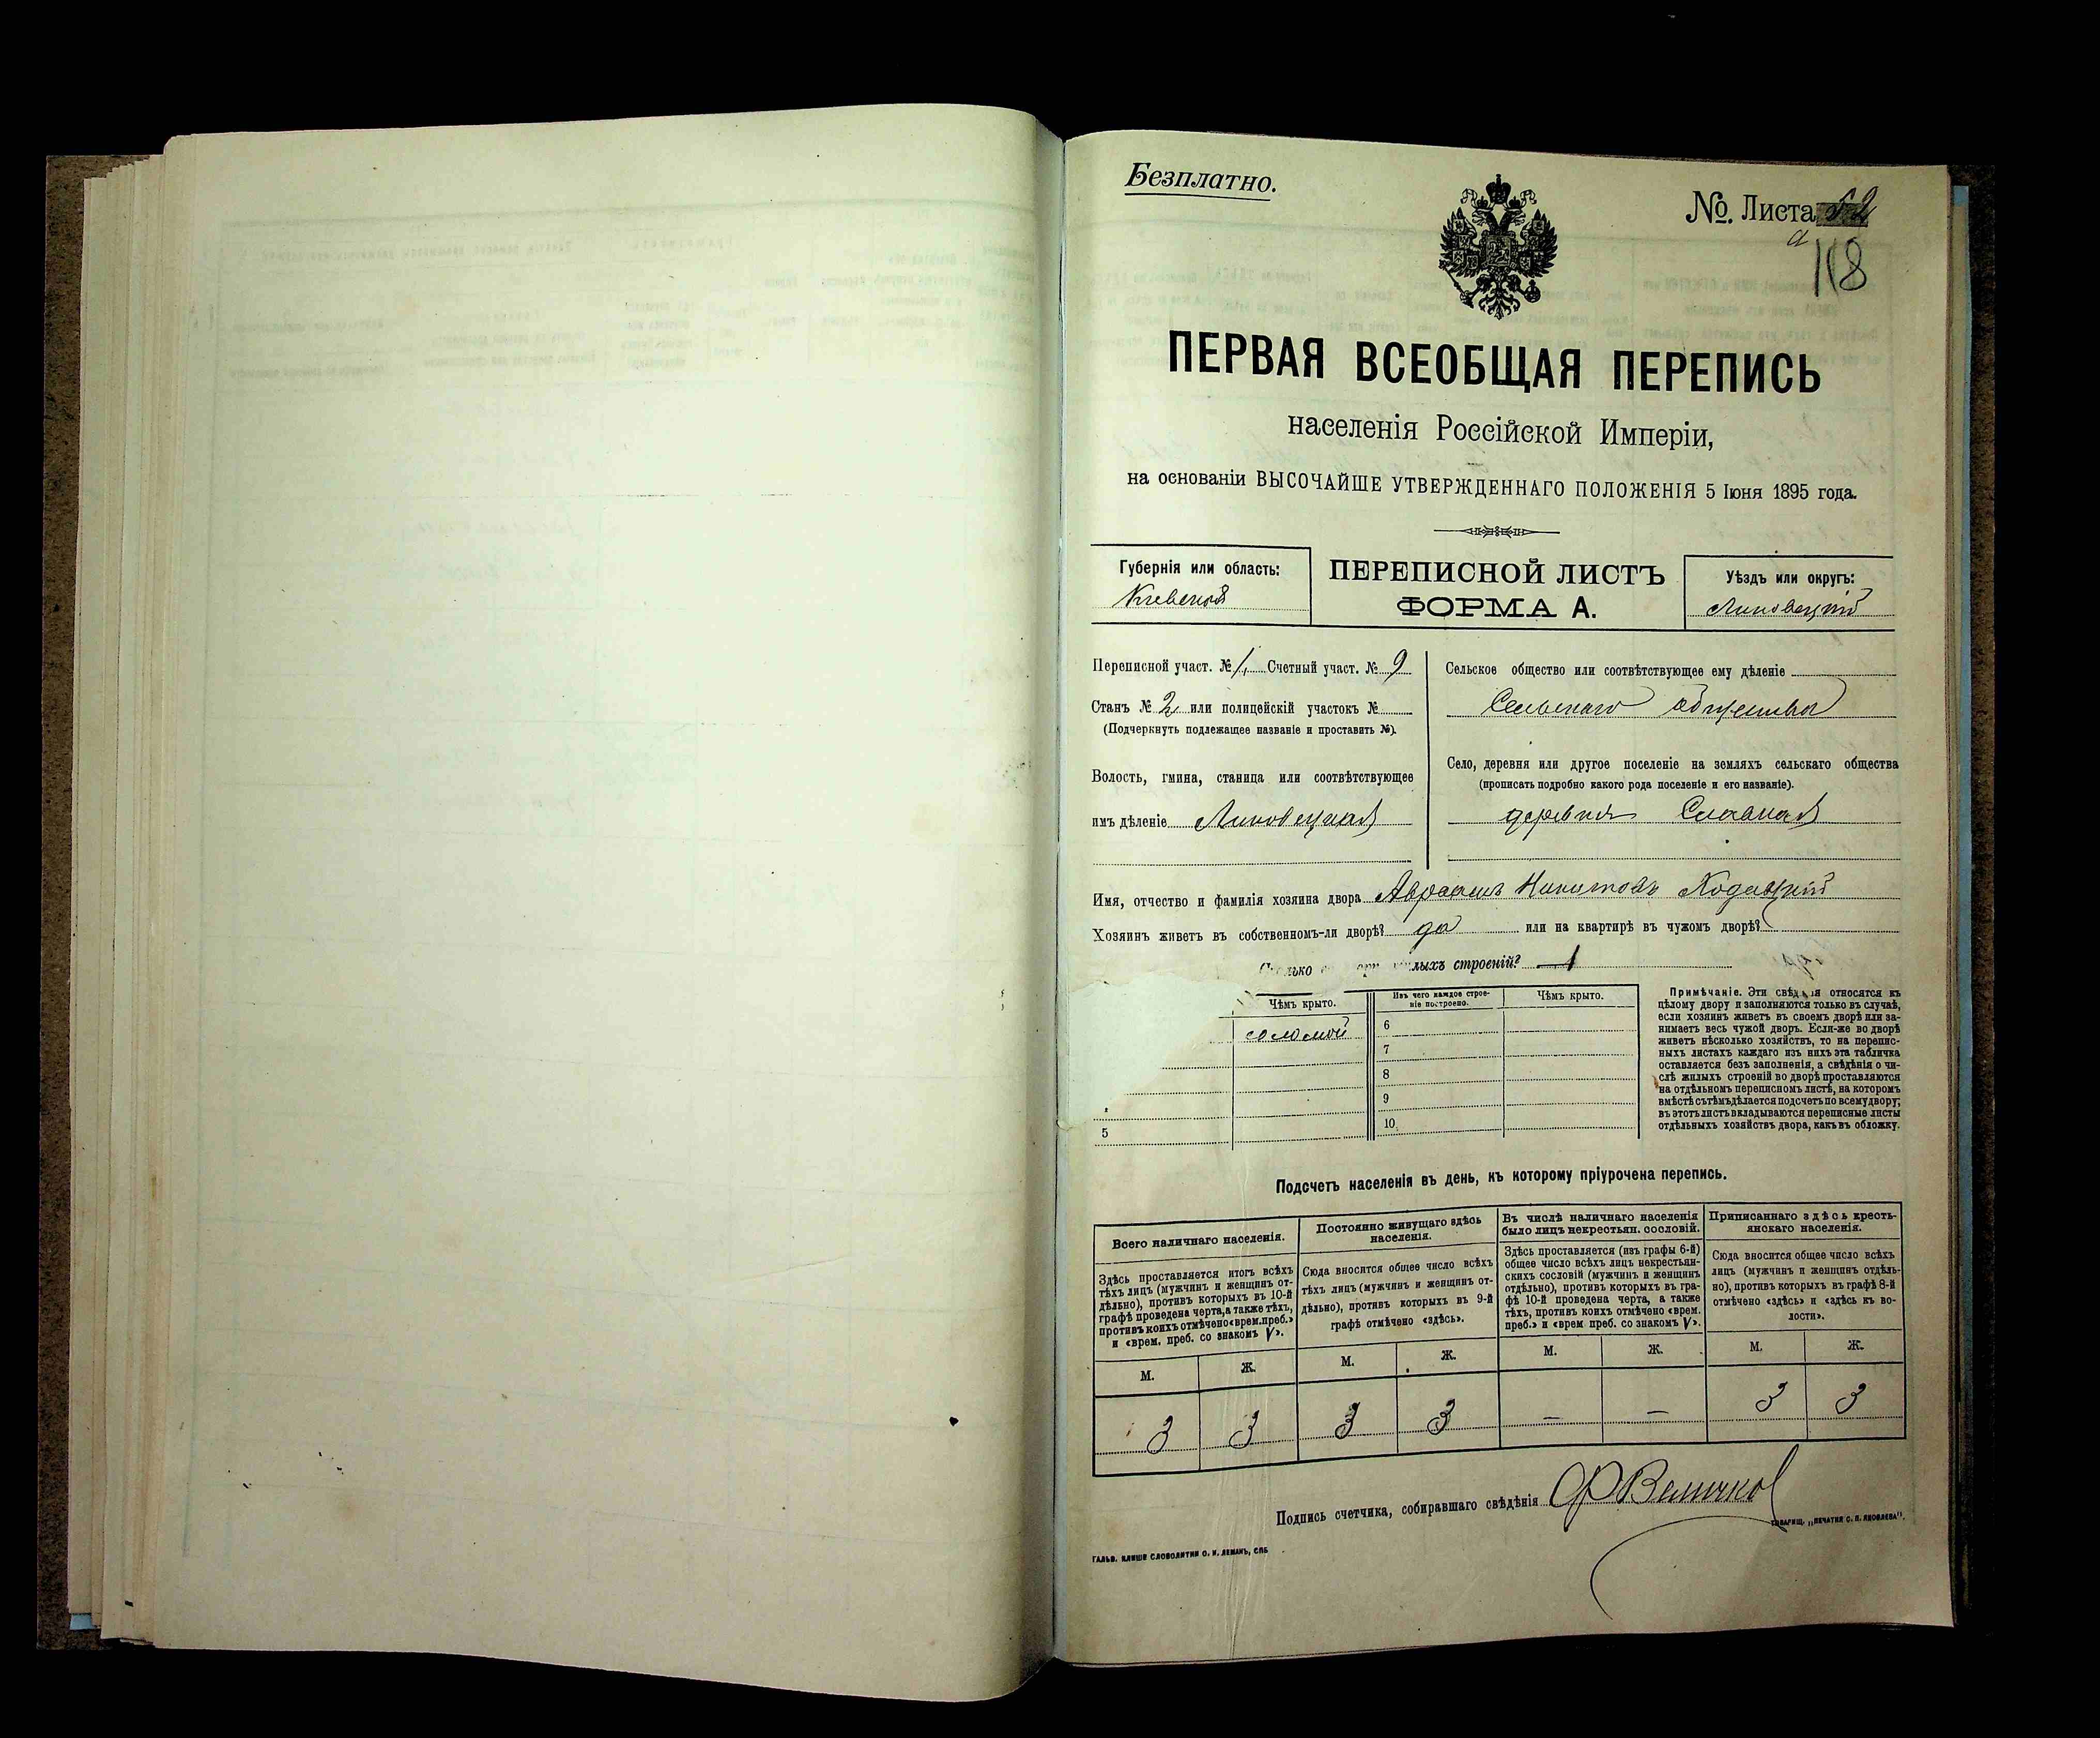 Безплатно.
№. Листа 52
а 118
ПЕРВАЯ ВСЕОБЩАЯ ПЕРЕПИСЬ
населенія Россійской Имперіи,
на основаніи ВЫСОЧАЙШЕ УТВЕРЖДЕННАГО ПОЛОЖЕНІЯ 5 Іюня 1895 года.
Губернія или область:
Кіевской
ПЕРЕПИСНОЙ ЛИСТЪ
ФОРМА А.
Уѣздъ или округъ:
Липовецкій
Переписной участ. № 1, Счетный участ. № 9
Станъ № 2 или полицейскій участокъ №
(Подчеркнуть подлежащее названіе и проставить №).
Волость, гмина, станица или соотвѣтствующее
имъ дѣленіе Липовецкая
Сельское общество или соотвѣтствующее ему дѣленіе
Сельскаго общества
Село, деревня или другое поселеніе на земляхъ сельскаго общества
(прописать подробно какого рода поселеніе и его названіе).
деревня Славная
Имя, отчество и фамилія хозяина двора Авраамъ Никитовъ Ходацкій
Хозяинъ живетъ въ собственномъ-ли дворѣ? да или на квартирѣ въ чужомъ дворѣ?
Сколько лыхъ строеній? 1
Чѣмъ крыто.
Изъ чего каждое строе-
ніе построено.
Чѣмъ крыто.
соломой
6
7
8
9
5
10
Примѣчаніе. Эти свѣд ія относятся къ
цѣлому двору и заполняются только въ случаѣ,
если хозяинъ живетъ въ своемъ дворѣ или за-
нимаетъ весь чужой дворъ. Если-же во дворѣ
живетъ нѣсколько хозяйствъ, то на перепис-
ныхъ листахъ каждаго изъ нихъ эта табличка
оставляется безъ заполненія, а свѣдѣнія о чи-
слѣ жилыхъ строеній во дворѣ проставляются
на отдѣльномъ переписномъ листѣ, на которомъ
вмѣстѣ съ тѣмъ дѣлается подсчетъ по всему двору;
въ этотъ листъ вкладываются переписные листы
отдѣльныхъ хозяйствъ двора, какъ въ обложку.
Подсчетъ населенія въ день, къ которому пріурочена перепись.
Всего наличнаго населенія.
Здѣсь проставляется итогъ всѣхъ
тѣхъ лицъ (мужчинъ и женщинъ от-
дѣльно), противъ которыхъ въ 10-й
графѣ проведена черта, а также тѣхъ,
противъ коихъ отмѣчено «врем. преб.»
и «врем. преб. со знакомъ V».
М. Ж.
3 3
Постоянно живущаго здѣсь
населенія.
Сюда вносится общее число всѣхъ
тѣхъ лицъ (мужчинъ и женщинъ от-
дѣльно), противъ которыхъ въ 9-й
графѣ отмѣчено «здѣсь».
М. Ж.
3 3
Въ числѣ наличнаго населенія
было лицъ некрестьян. сословій.
Здѣсь проставляется (изъ графы 6-й)
общее число всѣхъ лицъ некрестьян-
скихъ сословій (мужчинъ и женщинъ
отдѣльно), противъ которыхъ въ гра-
фѣ 10-й проведена черта, а также
тѣхъ, противъ коихъ отмѣчено «врем.
преб.» и «врем преб. со знакомъ V».
М. Ж.
— —
Приписаннаго здѣсь кресть-
янскаго населенія.
Сюда вносится общее число всѣхъ
лицъ (мужчинъ и женщинъ отдѣль-
но), противъ которыхъ въ графѣ 8-й
отмѣчено «здѣсь» и «здѣсь къ во-
лости».
М. Ж.
3 3
Подпись счетчика, собиравшаго свѣдѣнія Ф Величко
ТОВАРИЩ. „ПЕЧАТНЯ С. П. ЯКОВЛЕВА".
ГАЛЬВ. КЛИШЕ СЛОВОЛИТНИ О. И. ЛЕМАНЪ, СПБ